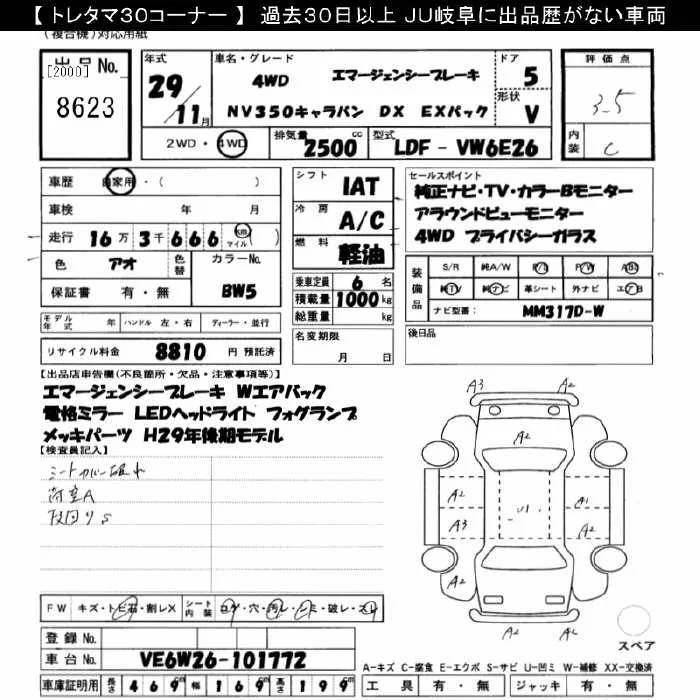 【トレタマ30コーナー】 過去30日以上 JU岐阜に出品歴がない車両
(複合機)対応用紙
出品No.
[2000]
8623
年式
29
11月
車名・グレード
4WD エマージェンシーブレーキ
NV350キャラバン DX EXパック
ドア
5
形状
V
2WD・4WD
排気量
2500cc
型式
LDF - VW6E26
評価点
3.5
内装
C
車歴 自家用・( )
車検 年 月
走行 16万3千666 km マイル( )
色 アオ
色替
カラーNo.
BW5
保証書 有・無
シフト
IAT
冷房
A/C
燃料
軽油
乗車定員 6名
積載量 1000kg
総重量 kg
セールスポイント
純正ナビ・TV・カラーBモニター
アラウンドビューモニター
4WD プライバシーガラス
装備品
S/R 純A/W P/S P/W ABS
純TV 純ナビ 革シート 外ナビ エアB
ナビ型番: MM317D-W
モデル年式 年 ハンドル 左・右 ディーラー・並行
リサイクル料金 8810 円 預託済
名変期限
月 日
後日品
【出品店申告欄(不良箇所・欠品・注意事項等)】
エマージェンシーブレーキ Wエアバック
電格ミラー LEDヘッドライト フォグランプ
メッキパーツ H29年後期モデル
【検査員記入】
シートカバー破れ
荷室A
下回りS
A3
A2
A2
A2
A2
A3
A1
A2
U1
A2
A2
A2
FW キズ・トビ石・割レX
シート内装
コゲ・穴・汚レ・シミ・破レ・スレ
スペア
登録No.
車台No. VE6W26-101772
A-キズ C-腐食 E-エクボ S-サビ U-凹ミ W-補修 XX-交換済
車庫証明用 長さ 469 幅 169 高さ 199
工具 有・無 ジャッキ 有・無